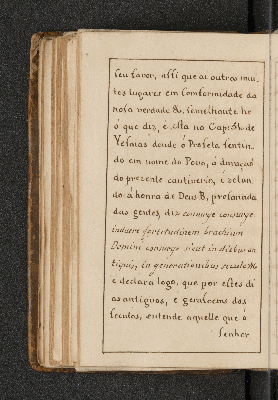 seu favor, assi que as outras mui-
tos lugares em Comformidade da
nosa verdade &, semelhante he
o que diz, é esta no Cap: 51. de
Yesaias donde ó Profeta sentin-
do em nome do Povo, á duraçaõ
do prezente cautiverio, é zelan-
do á honra de Deus B, profanada
das gentes, diz consurge consurge,
induere fortitudinem brachium
Domini, consurge sicut in diebus an-
tiquis, in generationibus seculo
e declara logo, que por estes di
as antiguos, e geraçoems dos
seculos, entende aquelle que ó
Senhor